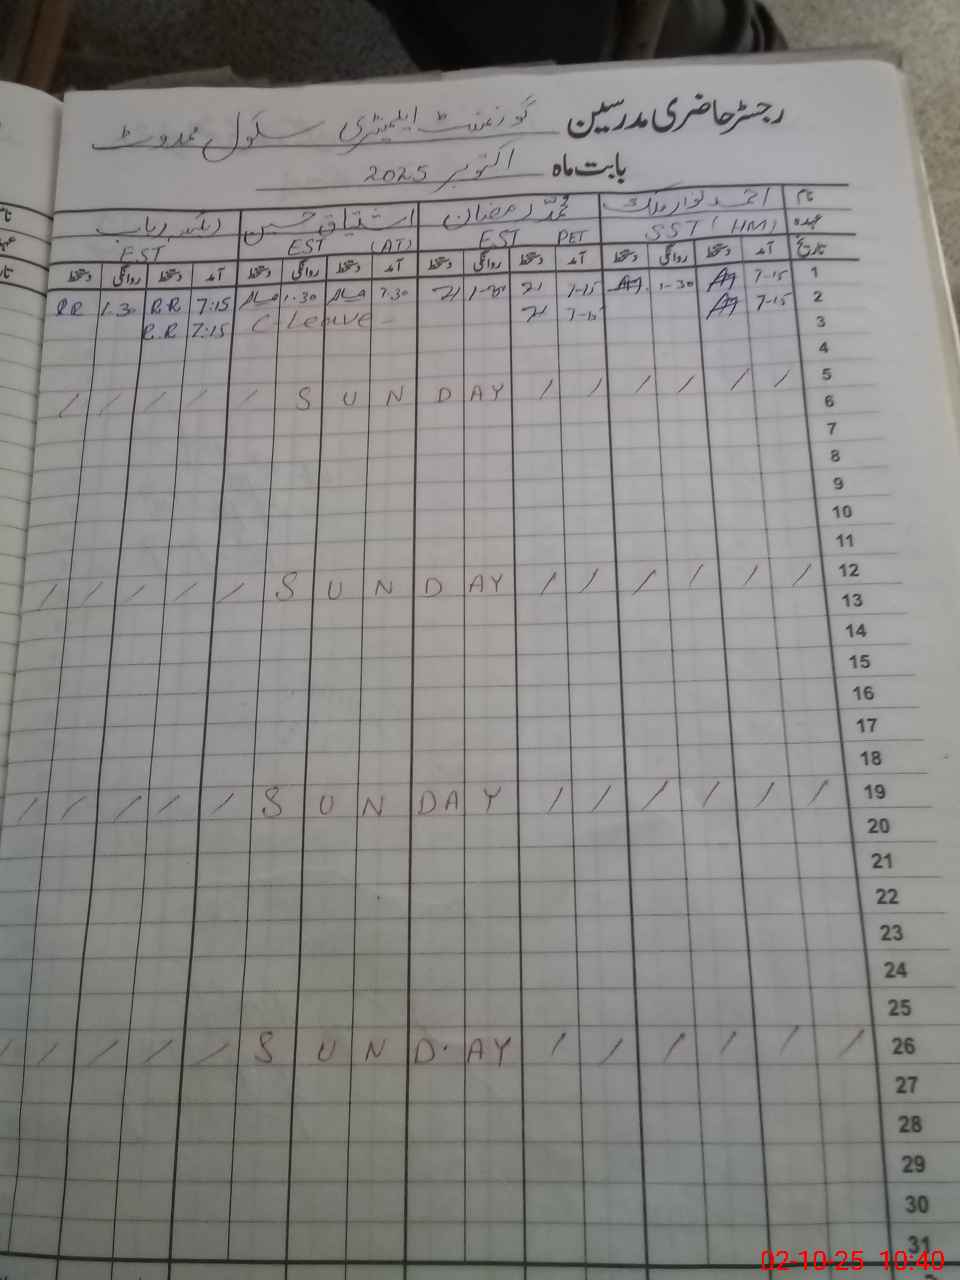 رجسٹر حاضری مدرسین گورنمنٹ ایلیمنٹری سکول ممدوٹ
بابت ماہ اکتوبر 2025
نام احمد نواز ملک محمد رمضان اشتیاق حسین رباب
عہدہ SST (HM) EST PET EST (AT) EST
تاریخ آمد دستخط روانگی دستخط آمد دستخط روانگی دستخط آمد دستخط روانگی دستخط آمد دستخط روانگی دستخط
1 7-15 1-30 7-15 1-30 7.30 1.30 7:15 R.R 1.30 R.R
2 7-15 7-15 C Leave - 7:15 R.R
3
4
5 / / / / / / S U N D A Y / / / / /
6
7
8
9
10
11
12 / / / / / / S U N D A Y / / / / /
13
14
15
16
17
18
19 / / / / / / S U N D A Y / / / / /
20
21
22
23
24
25
26 / / / / / / S U N D A Y / / / / /
27
28
29
30
31
02-10-25 10:40